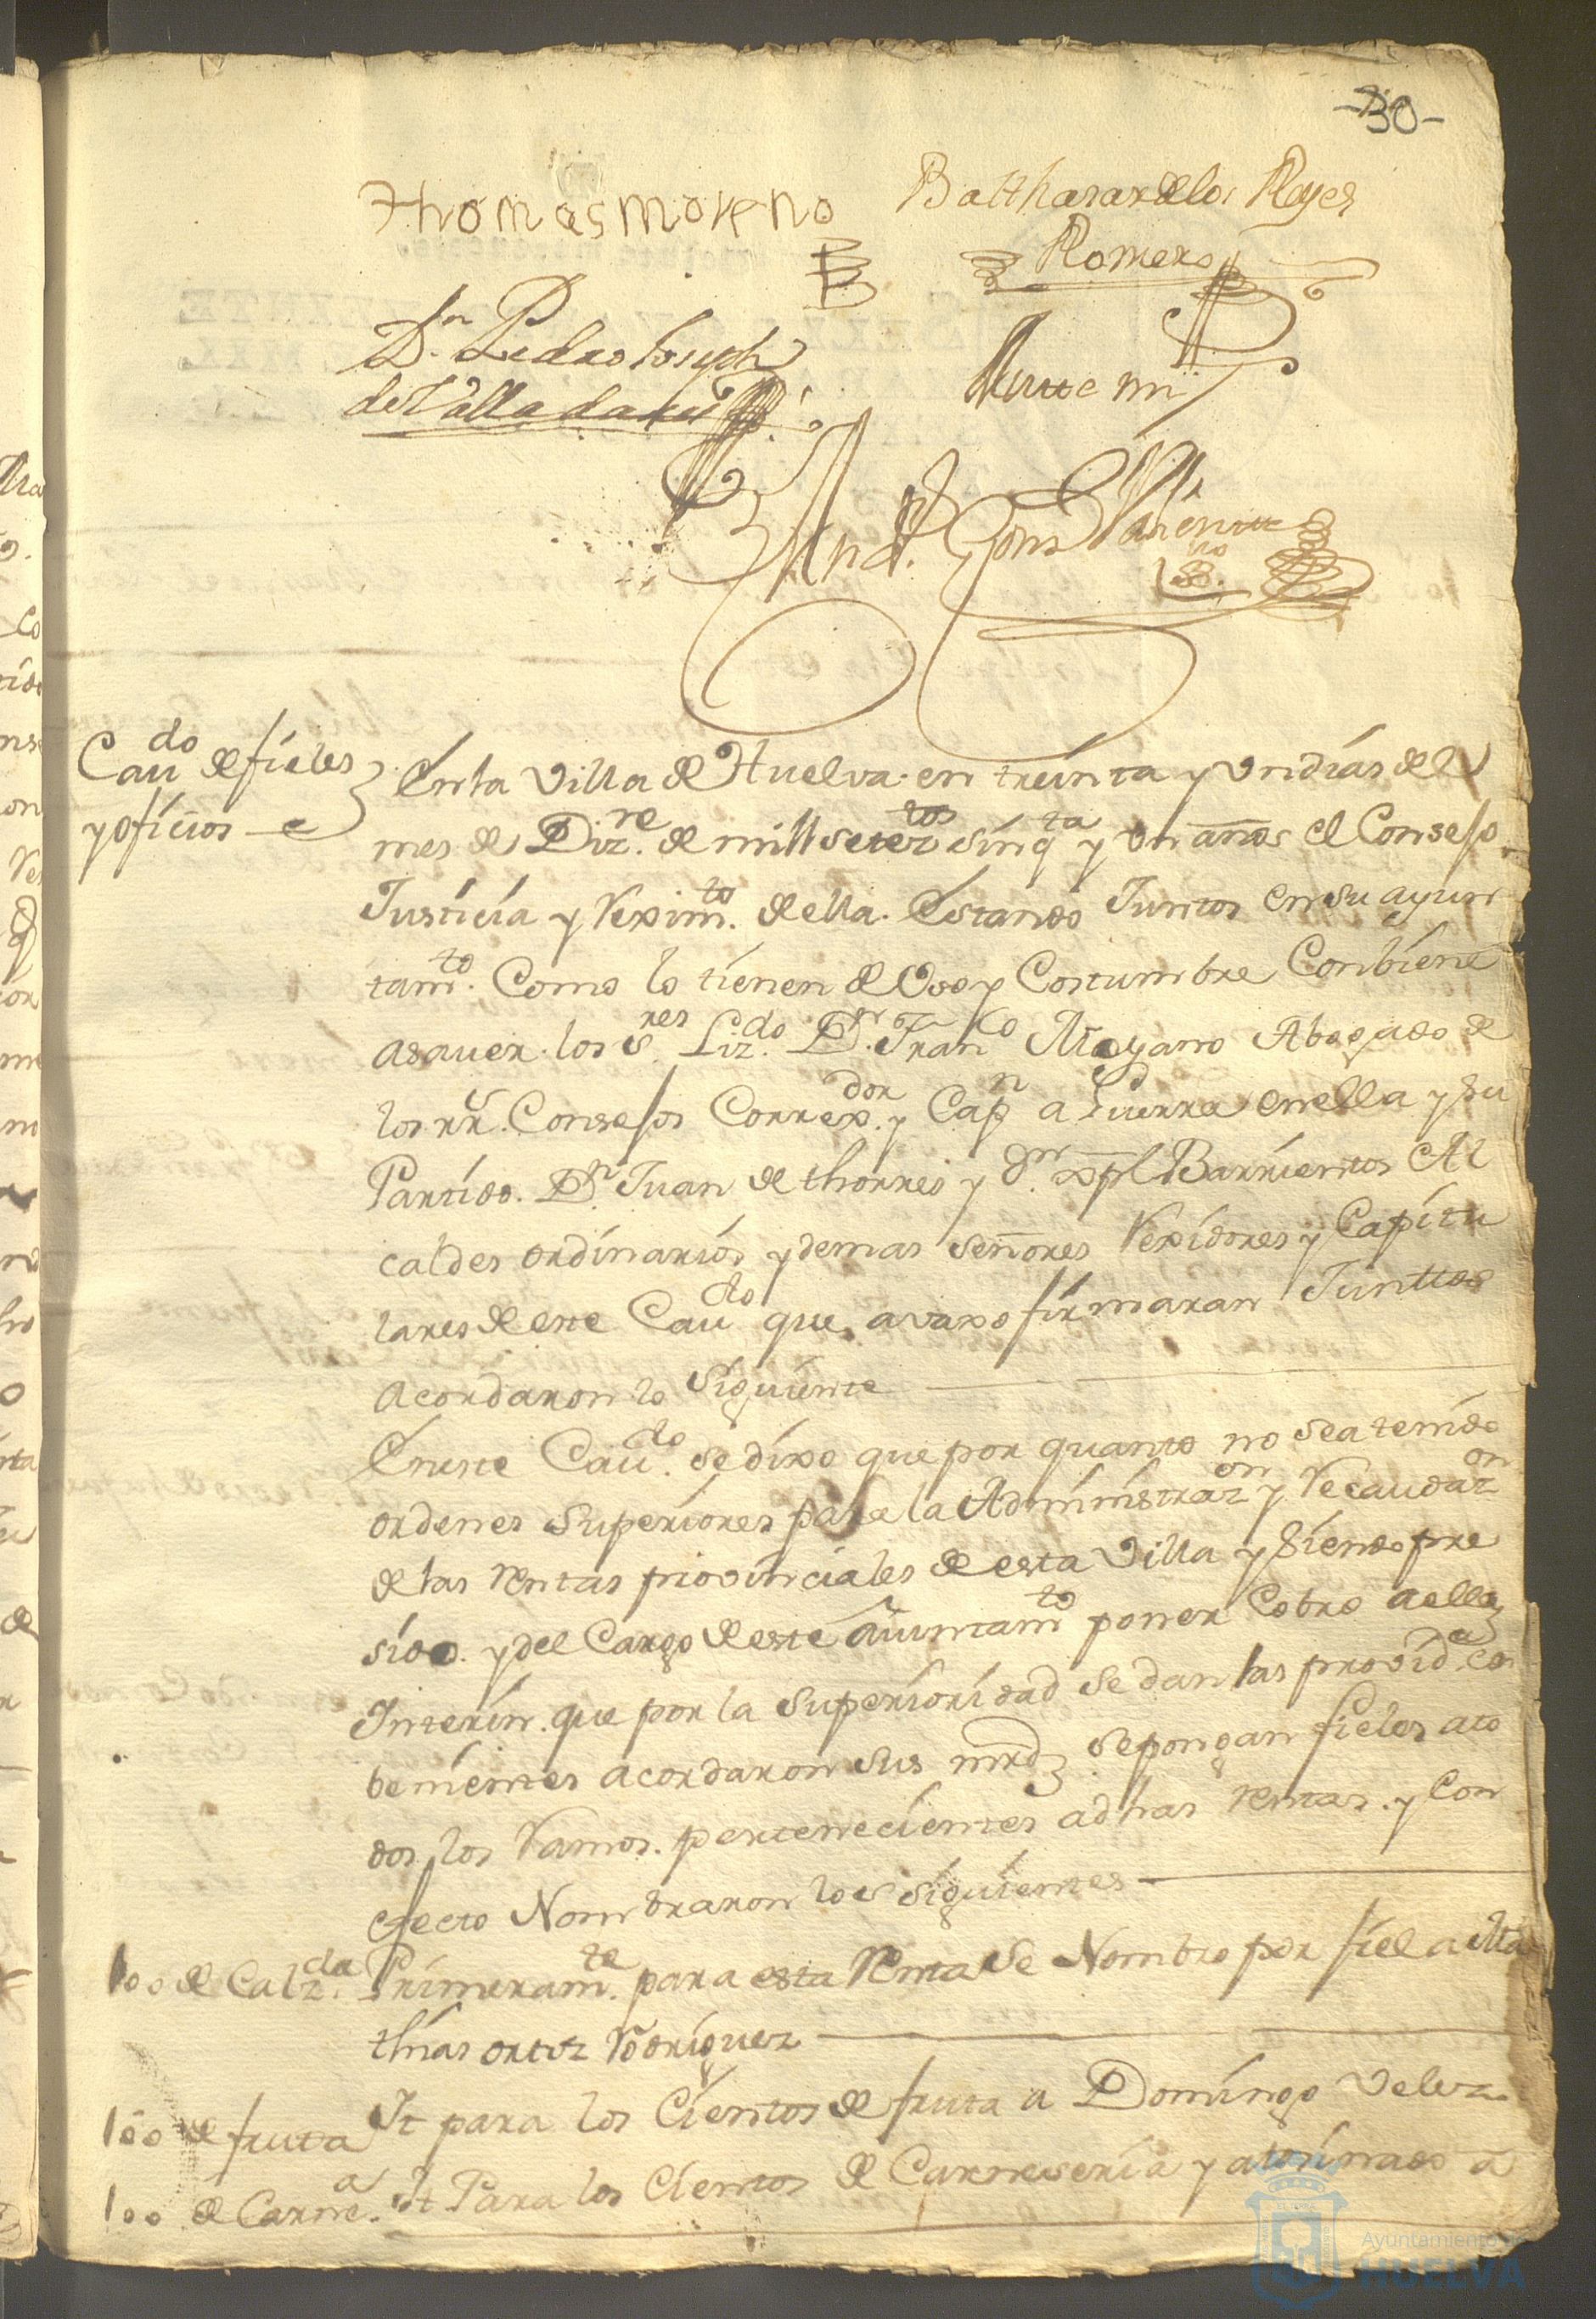 -30-
Thomas moreno
Balthasar de los Reyes
Romero
Dn. Pedro Joseph
de Valladares
Ante mi
And. Gonz
Cau.do de fieles
y oficios
En la Villa de Huelva en treinta y un dias del
mes de Diz.re de mill setez.tos sinq.ta y un años el Consejo
Justicia y Reximto. de ella. Estando Juntos en su ayun
tamto. Como lo tienen de Vso y Costumbre Conbiene
asauer. los S.res Lizdo. Dn. Franco Moyano Abogado de
los rr.s Consejos Correx.dor y Capn a Guerra en ella y su
Partido. Dn. Juan de thorres y Dn. Xpl Barrientos Al
caldes ordinarios y demas señores Rexidores y Capitu
lares de este Caudo que avaxo firmaran Junttos
Acordaron lo Siguiente
En este Cau.do se dixo que por quanto no sea tenido
ordenes Superiores para la Administrazon y Recaudazon
de las rentas provinciales de esta Villa y siendo pre
siso. y del Cargo de este Aiuntamto poner Cobro a ellas
Interin. que por la Superioridad se dan las provid.as Con
benientes acordaron sus mrds. se pongan fieles ato
dos los Ramos. pertenecientes a dhas rentas. y Con
efecto Nombraron los siguientes
100 de Calz.da
Primeramte. para esta Renta se Nombro por fiel a Ma
thias ortiz Rodriguez
100 de fruta
It para los Cientos de fruta a Domingo Velez
100 de Carne.a
It Para los Cientos de Carneseria y atosinado a
Ayuntamiento de
HUELVA